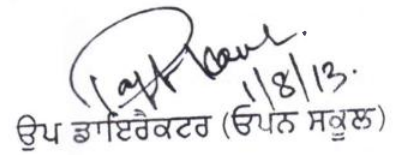 1/8/13.
ਉਪ ਡਾਇਰੈਕਟਰ (ਓਪਨ ਸਕੂਲ)